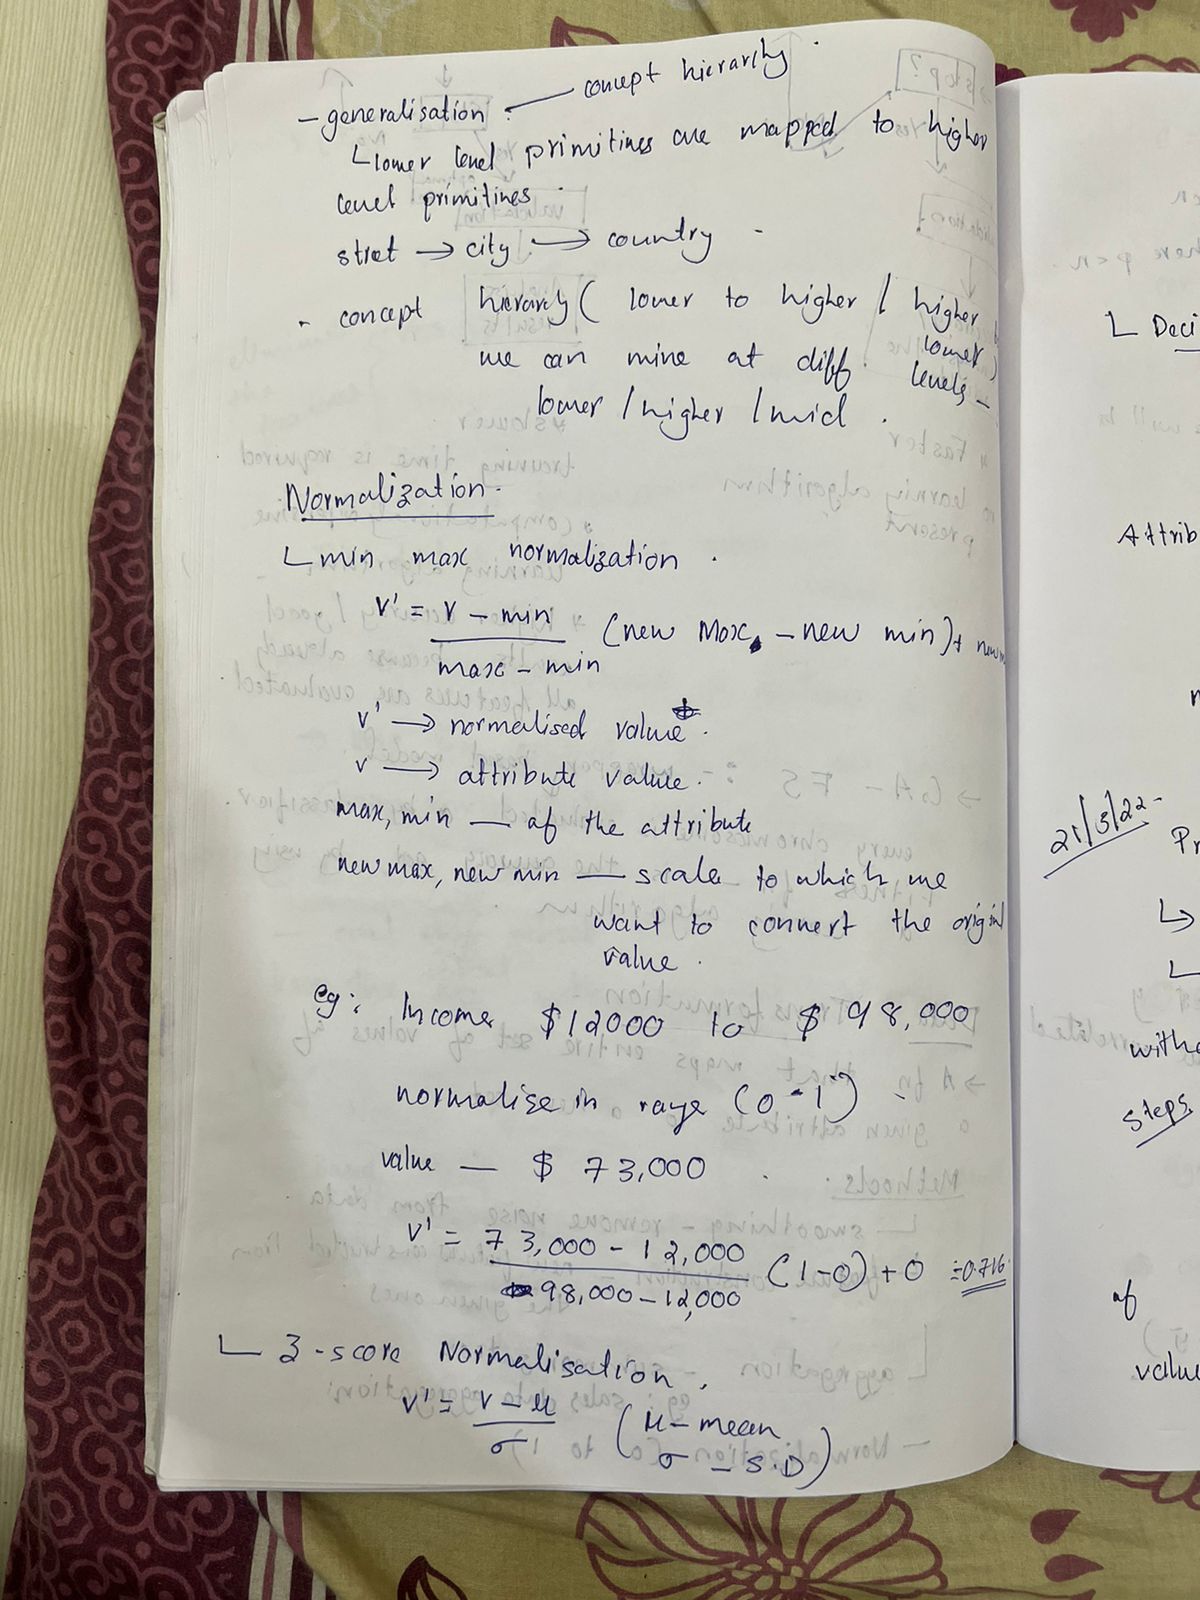 concept hierarchy.
- generalisation :
lower level primitines are mapped to higher
level primitines.
stret → city → country
- concept hierarchy ( lower to higher / higher
lower)
we can mine at diff. levels -
lower / higher / mid.
Normalization.
min max normalization.
v' = v - min (new Max - new min) + new
max - min
v' → normalised value.
v → attribute value.
max, min — of the attribute
new max, new min — scale to which we
want to convert the original
value.
eg: Income $12000 to $ 98,000
normalise in range (0-1)
value — $ 73,000
v' = 73,000 - 12,000 (1-0) + 0 = 0.716
98,000 - 12,000
Z-score Normalisation.
v' = v - μ ( μ - mean
σ σ - S.D)
L Deci
Attrib
21/3/22
Pr
witho
steps
of
value